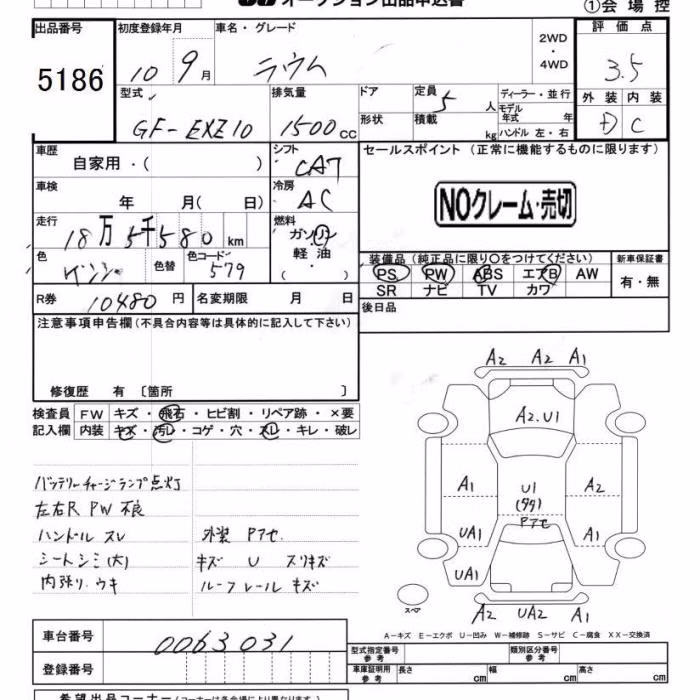 オークション出品申込書
①会場控
出品番号 5186
初度登録年月 10 9月
車名・グレード ラウム
2WD・4WD
評価点 3.5
型式 GF-EXZ10
排気量 1500 CC
ドア
形状
定員 5 人
積載 kg
ディーラー・並行
モデル年式 年
ハンドル 左・右
外装 内装
D C
車歴 自家用・( )
シフト CAT
セールスポイント (正常に機能するものに限ります)
NOクレーム・売切
車検 年 月( 日)
冷房 AC
走行 18万5千580 km
燃料 ガソリン 軽油 ( ・ )
色
色替
色コード 579
装備品 (純正品に限り○をつけてください)
新車保証書
PS PW ABS エアB AW
有・無
SR ナビ TV カワ
R券 10480 円
名変期限 月 日
後日品
注意事項申告欄 (不具合内容等は具体的に記入して下さい)
修復歴 有 〔箇所 〕
検査員記入欄
FW キズ・飛石・ヒビ割・リペア跡・×要
内装 キズ・汚レ・コゲ・穴・スレ・キレ・破レ
バッテリーチャージランプ点灯
左右R PW 不良
ハンドル スレ
シートシミ(大)
内張り ウキ
外装 Pアセ.
キズ U スリキズ
ルーフレール キズ
A2 A2 A1
A2.U1
A1 U1 A2
Pアセ
UA1 A1
UA1
A2 UA2 A1
スペア
A-キズ E-エクボ U-凹み W-補修跡 S-サビ C-腐食 XX-交換済
車台番号 0063031
登録番号
型式指定番号 参考
類別区分番号 参考
車庫証明用 参考 長さ cm 幅 cm 高さ cm
希望出品コーナー (コーナーは各会場により異なります)